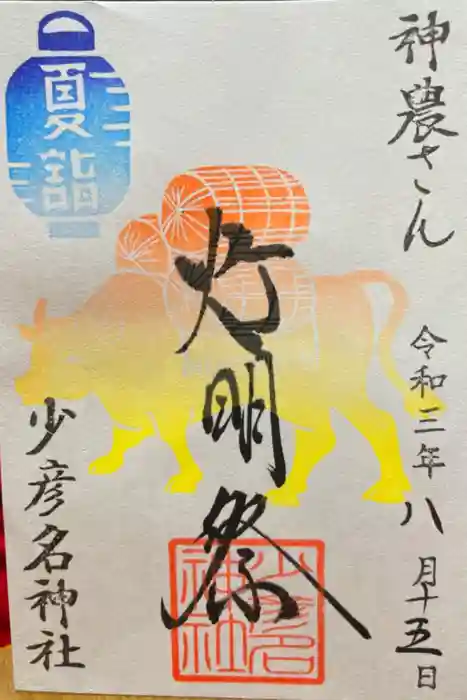 神農さん
令和三年八月十五日
夏詣
灯明祭
少彦名神社
少彦名
神社